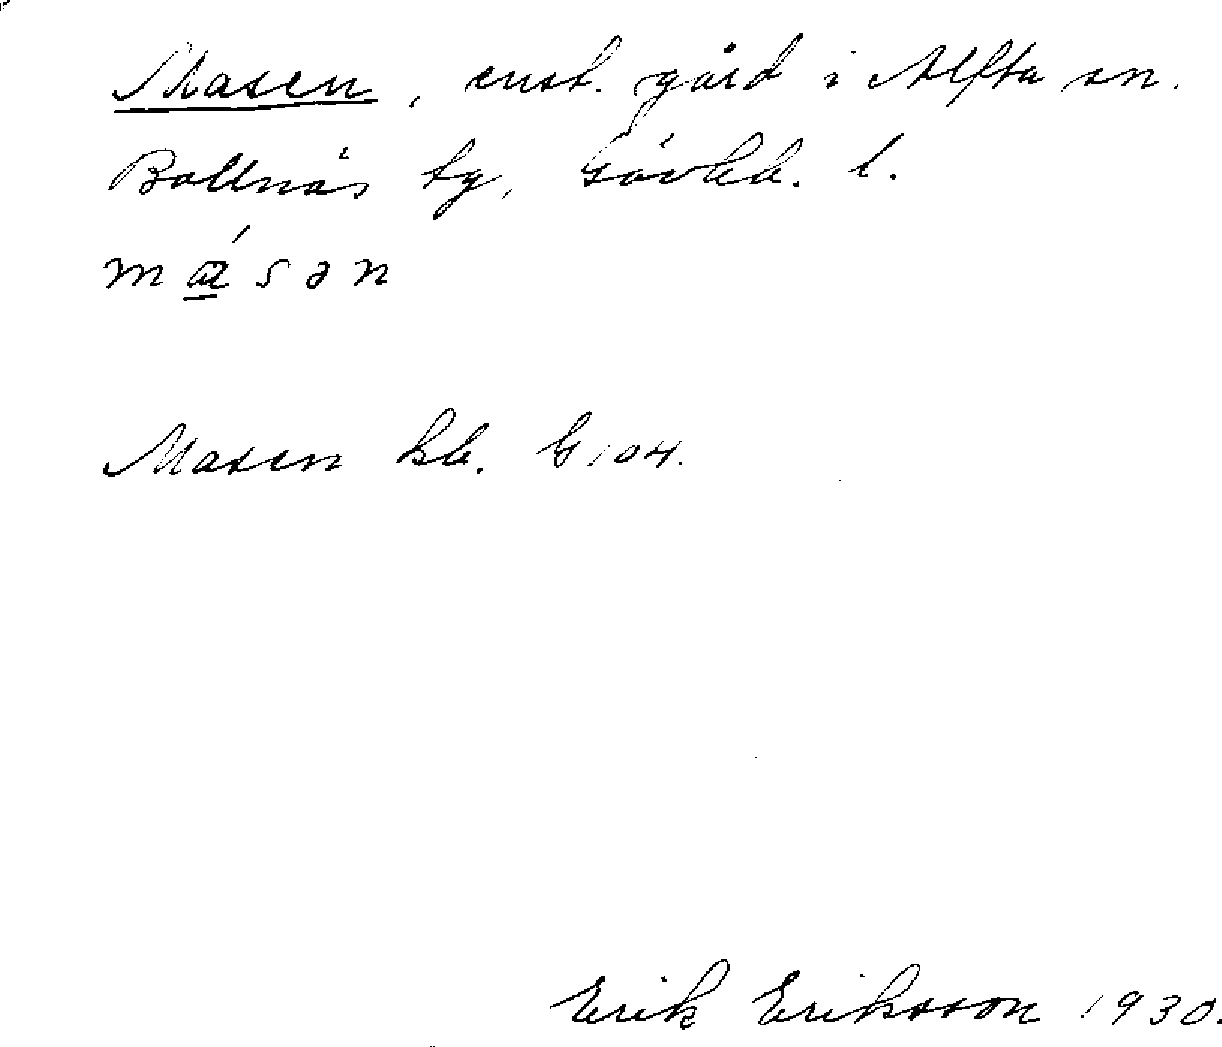 Masen, enst. gård i Alfta sn.
Bollnäs tg, Gävleb. l.
mǽsən
Masen kb. G 104.
Erik Eriksson 1930.